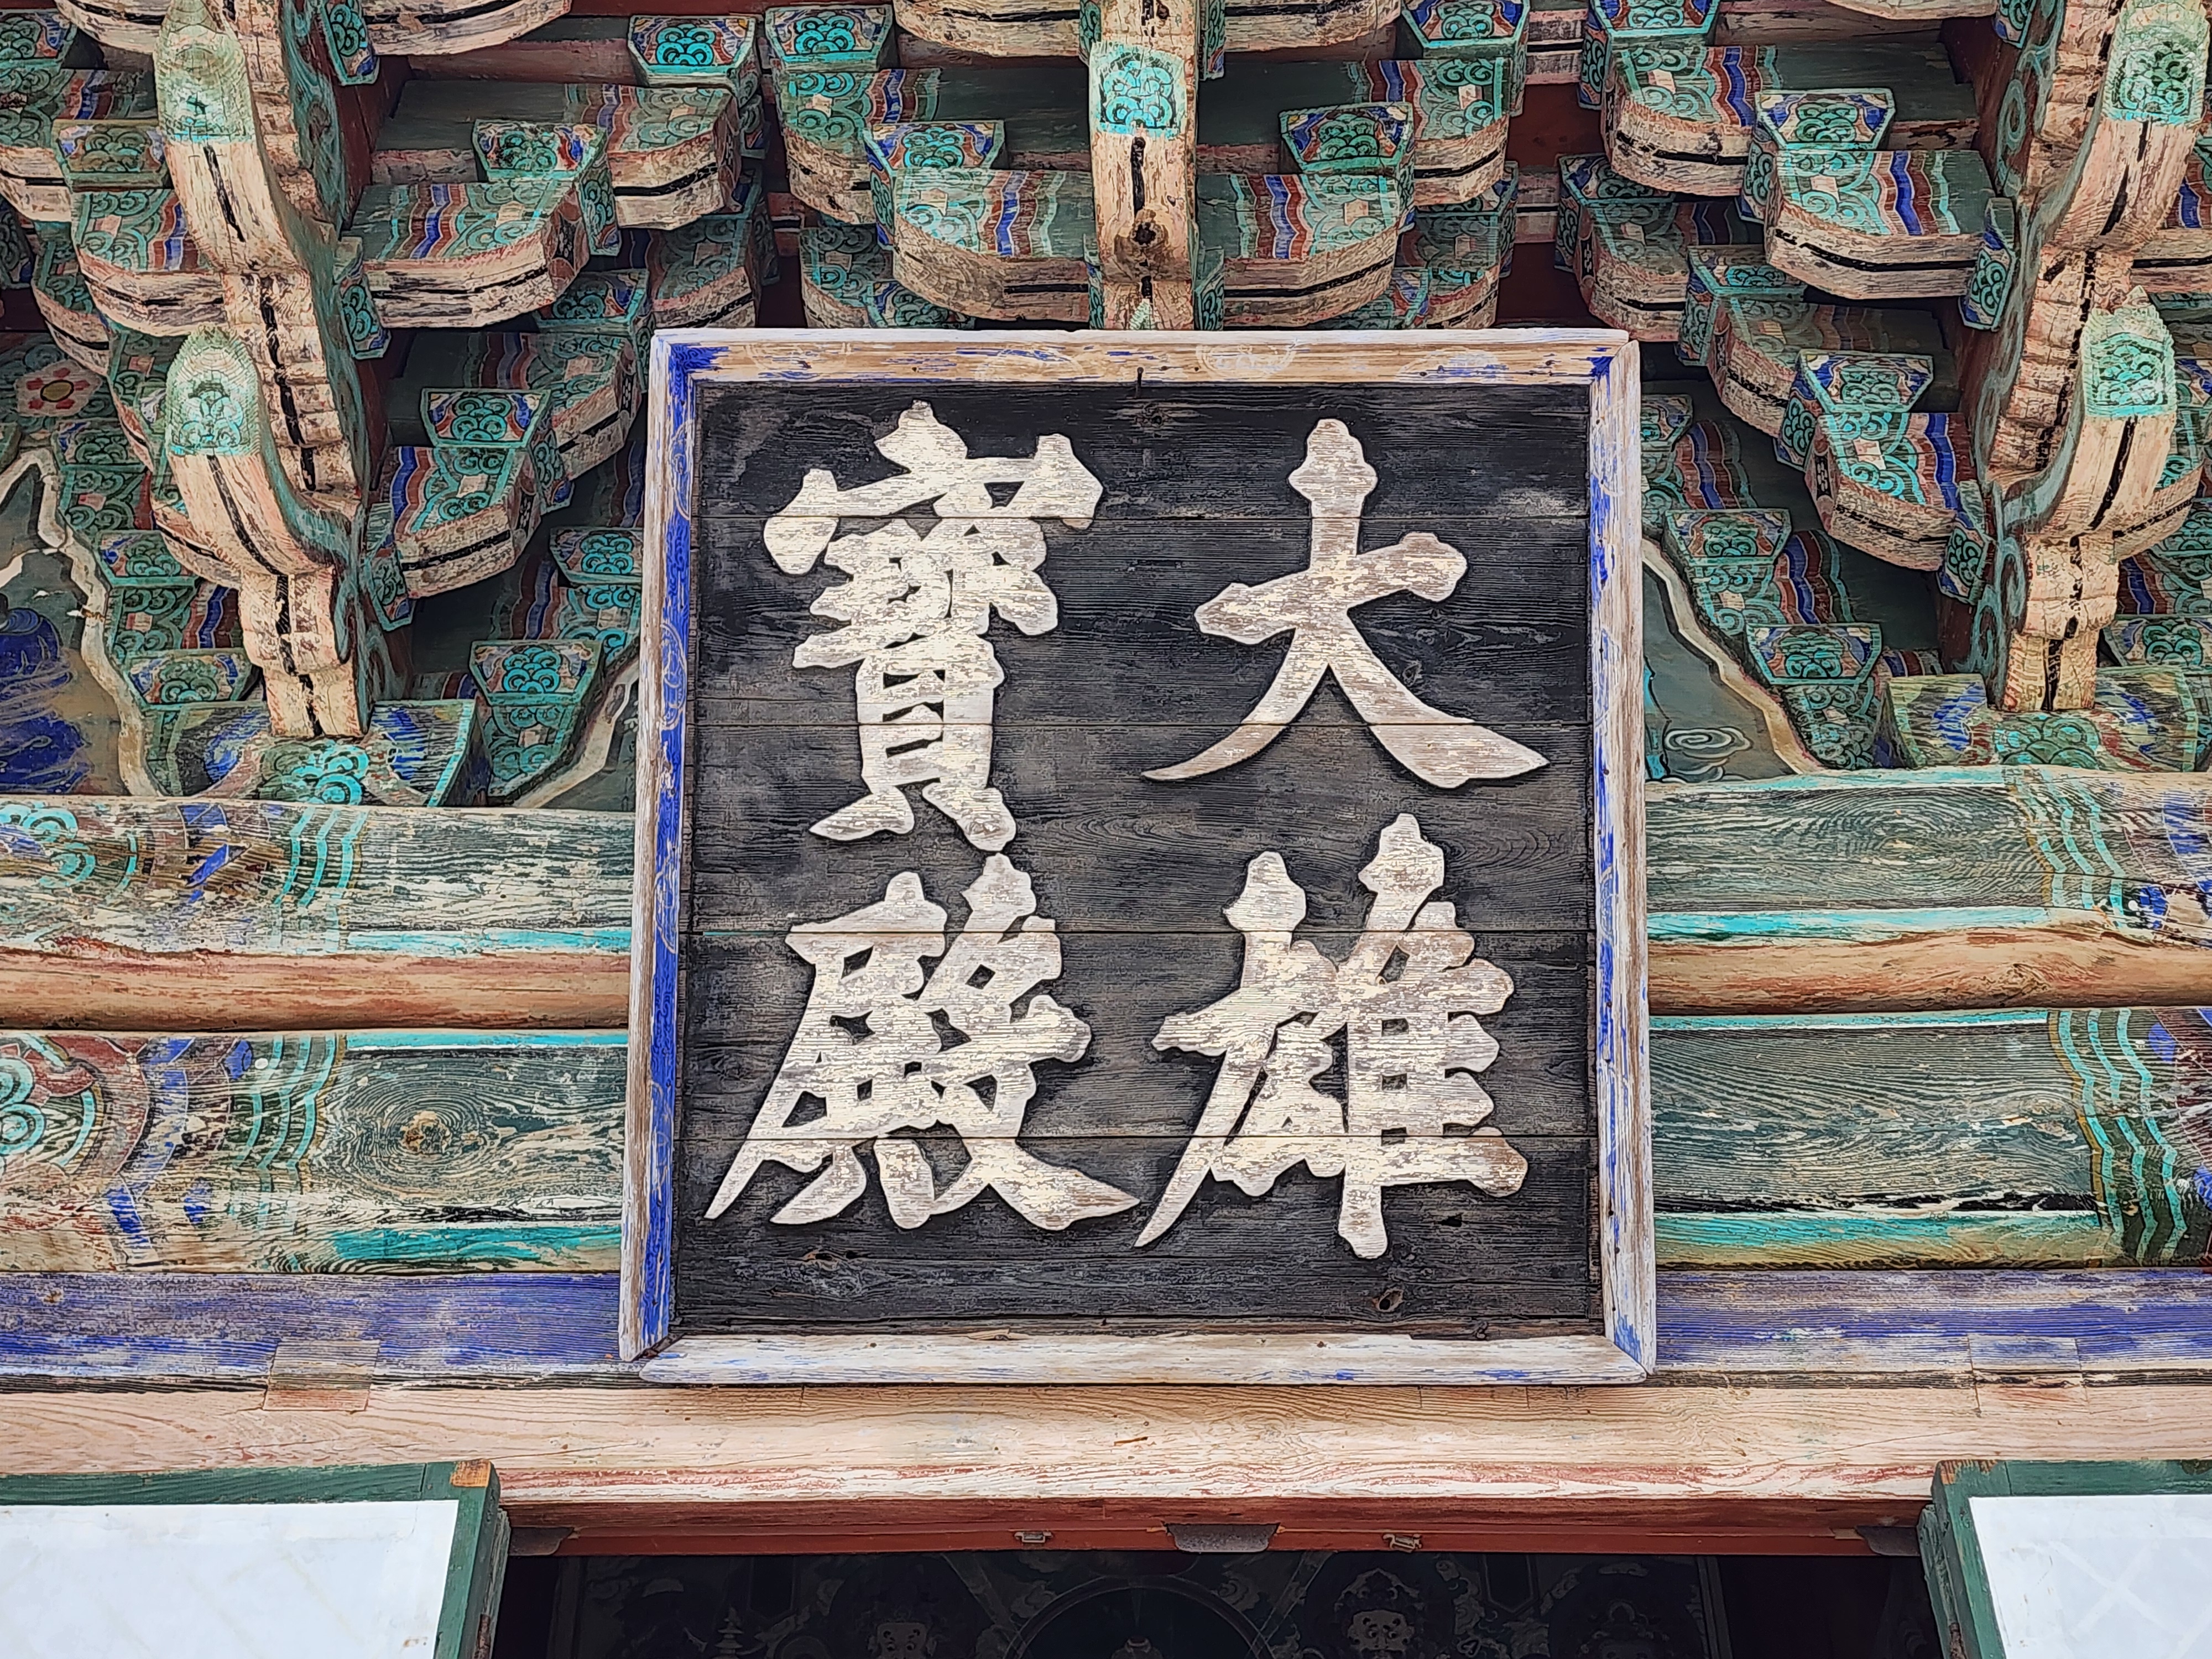 大雄
寶殿